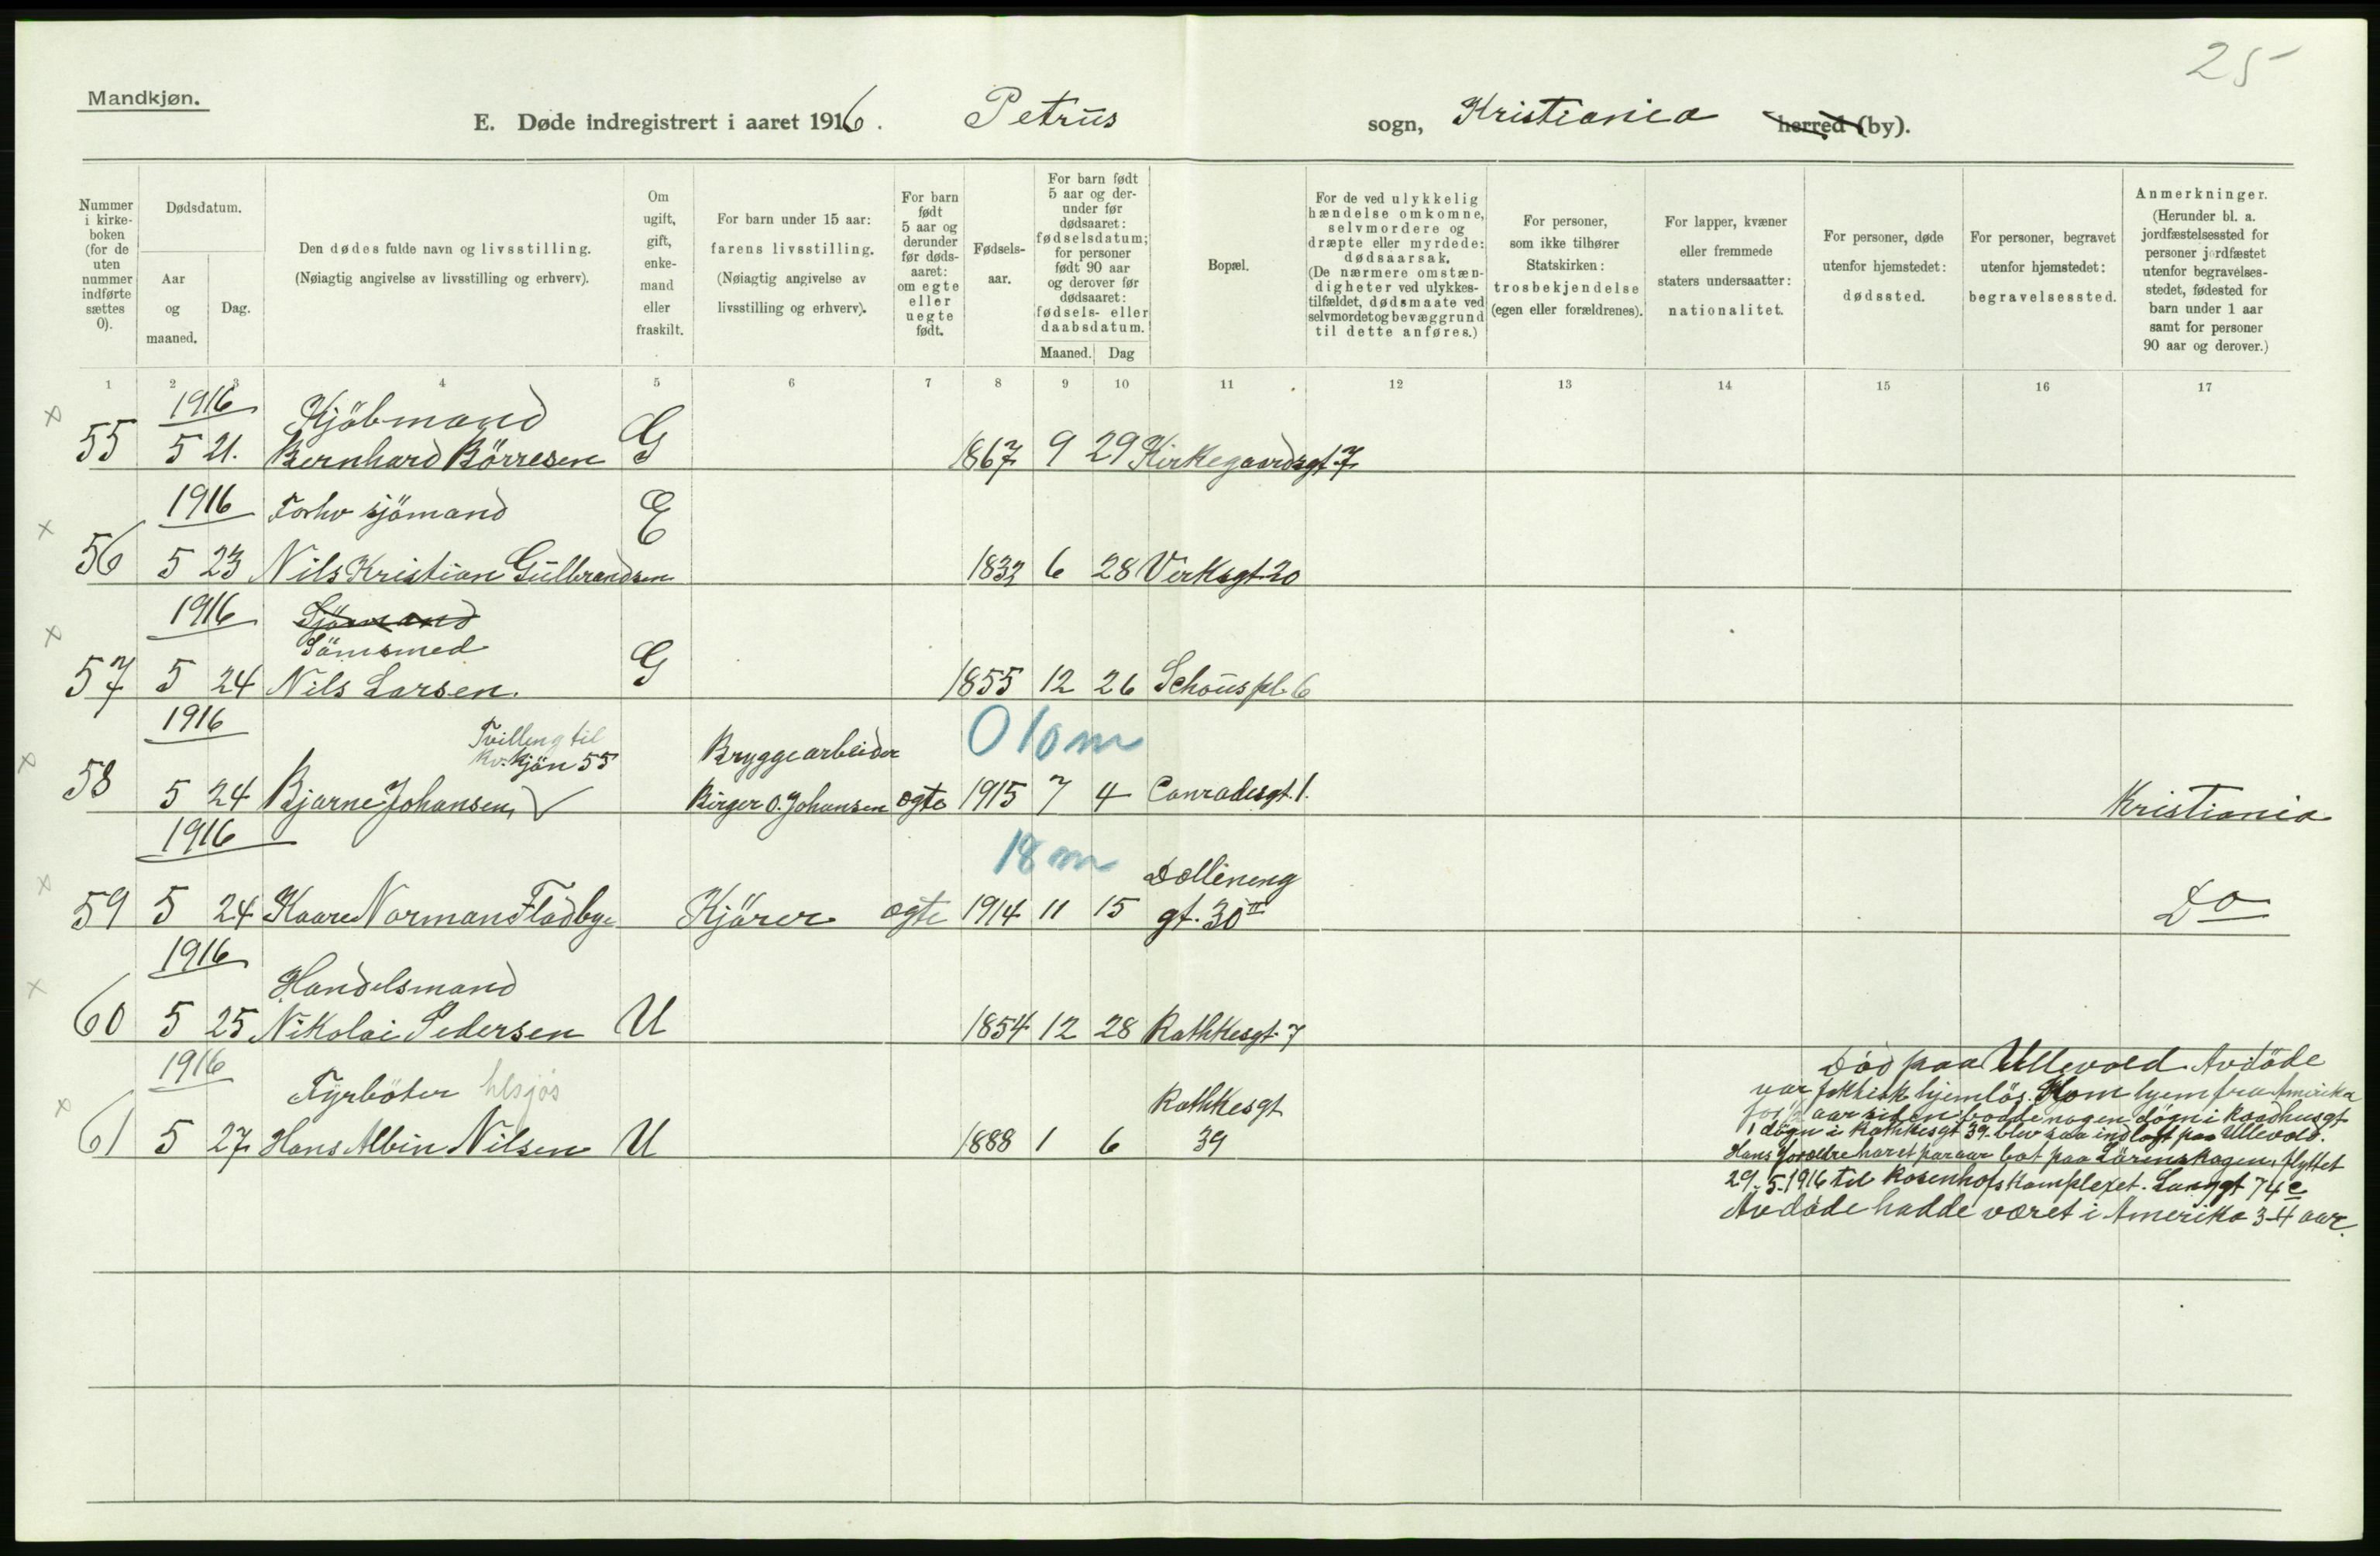 25
Mandkjøn.
E. Døde indregistrert i aaret 1916. Petrus sogn, Kristiania herred (by).
Nummer i kirkeboken (for de uten nummer indførte sættes 0).
Dødsdatum.
Aar og maaned.
Dag.
Den dødes fulde navn og livsstilling.
(Nøiagtig angivelse av livsstilling og erhverv).
Om ugift, gift, enkemand eller fraskilt.
For barn under 15 aar: farens livsstilling.
(Nøiagtig angivelse av livsstilling og erhverv).
For barn født 5 aar og derunder før dødsaaret: om egte eller uegte født.
Fødselsaar.
For barn født 5 aar og derunder før dødsaaret: fødselsdatum; for personer født 90 aar og derover før dødsaaret: fødsels- eller daabsdatum.
Maaned. Dag
Bopæl.
For de ved ulykkelig hændelse omkomne, selvmordere og dræpte eller myrdede: dødsaarsak.
(De nærmere omstændigheter ved ulykkestilfældet, dødsmaate ved selvmordet og bevæggrund til dette anføres.)
For personer, som ikke tilhører Statskirken: trosbekjendelse (egen eller forældrenes).
For lapper, kvæner eller fremmede staters undersaatter: nationalitet.
For personer, døde utenfor hjemstedet: dødssted.
For personer, begravet utenfor hjemstedet: begravelsessted.
Anmerkninger.
(Herunder bl. a. jordfæstelsessted for personer jordfæstet utenfor begravelsesstedet, fødested for barn under 1 aar samt for personer 90 aar og derover.)
1 2 3 4 5 6 7 8 9 10 11 12 13 14 15 16 17
x 1916 Kjöbmand
55 5 21. Bernhard Börresen G 1867 9 29 Kirkegaardsgt. 7
x 1916 Forhv sjömand E
56 5 23 Nils Kristian Gulbrandsen 1832 6 28 Verksgt. 20
x 1916 Sjömand
Sömsmed
57 5 24 Nils Larsen. G 1855 12 26 Schous pl. 6
x 1916 Tvilling til
kv. kjön 55 Bryggearbeider 0 10 m
58 5 24 Bjarne Johansen, Birger O. Johansen egte 1915 7 4 Conradsgt. 1. Kristiania
x 1916 18 m Dælleneng
59 5 24 Kaare Norman Fladbye Kjörer egte 1914 11 15 gt. 30 II Do
x 1916 Handelsmand
60 5 25 Nikolai Pedersen U 1854 12 28 Rathkesgt. 7
x 1916 Fyrböter Rathkesgt
61 5 27 Hans Albin Nilsen U 1888 1 6 39
Död paa Ullevold. Avdöde
var faktisk hjemlös. Kom hjem fra Amerika
aar siden bodde nogen dögn i Raadhusgt
1 dögn i Rathkesgt 39. blev saa indlagt paa Ullevold.
Hans forældre har et par aar bot paa Lörenskogen, flyttet
29.5.1916 til Rosenhofskomplexet. Langgt 74 c
Avdöde hadde været i Amerika 3-4 aar.